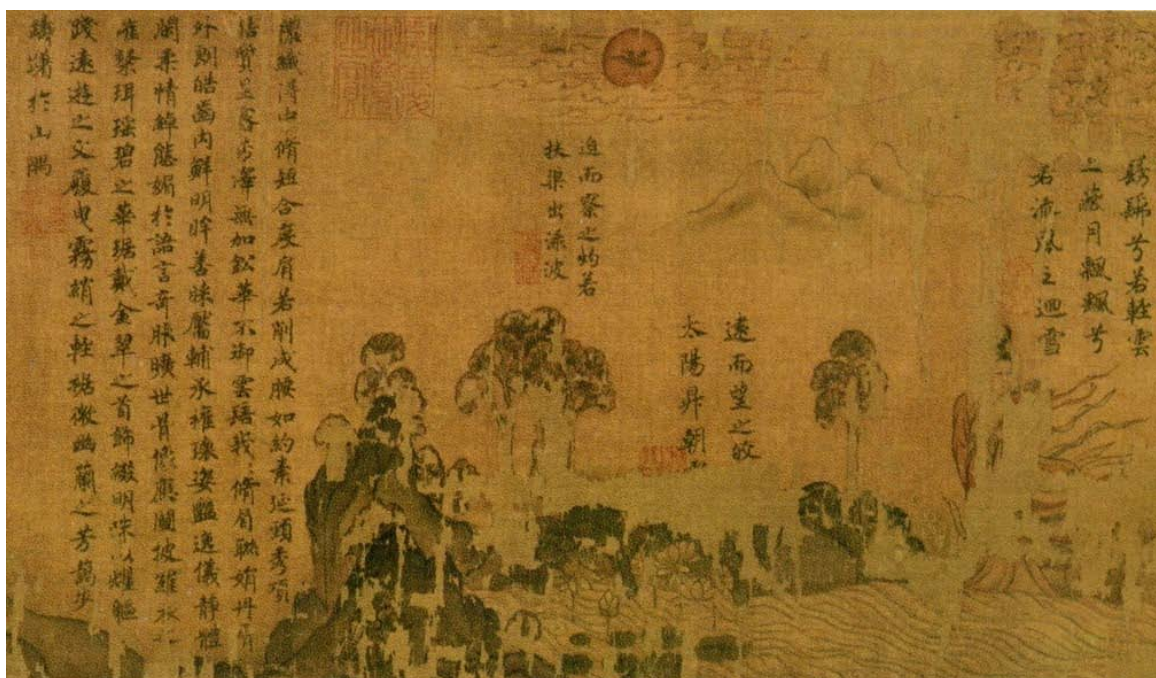 髣髴兮若輕雲
之蔽月飄飄兮
若流風之迴雪
遠而望之皎
太陽昇朝
迫而察之灼若
扶蕖出淥波
襛纖得中脩短合度肩若削成腰如約素延頸秀項
皓質呈露芳澤無加鉛華不御雲髻峨々脩眉聯娟丹脣
外朗皓齒內鮮明眸善睞靨輔承權瓌姿豔逸儀靜體
閑柔情綽態媚於語言奇服曠世骨像應圖披羅衣
璀粲珥瑤碧之華琚戴金翠之首飾綴明珠以耀軀
踐遠遊之文履曳霧綃之輕裾微幽蘭之芳藹步
踟躕於山隅